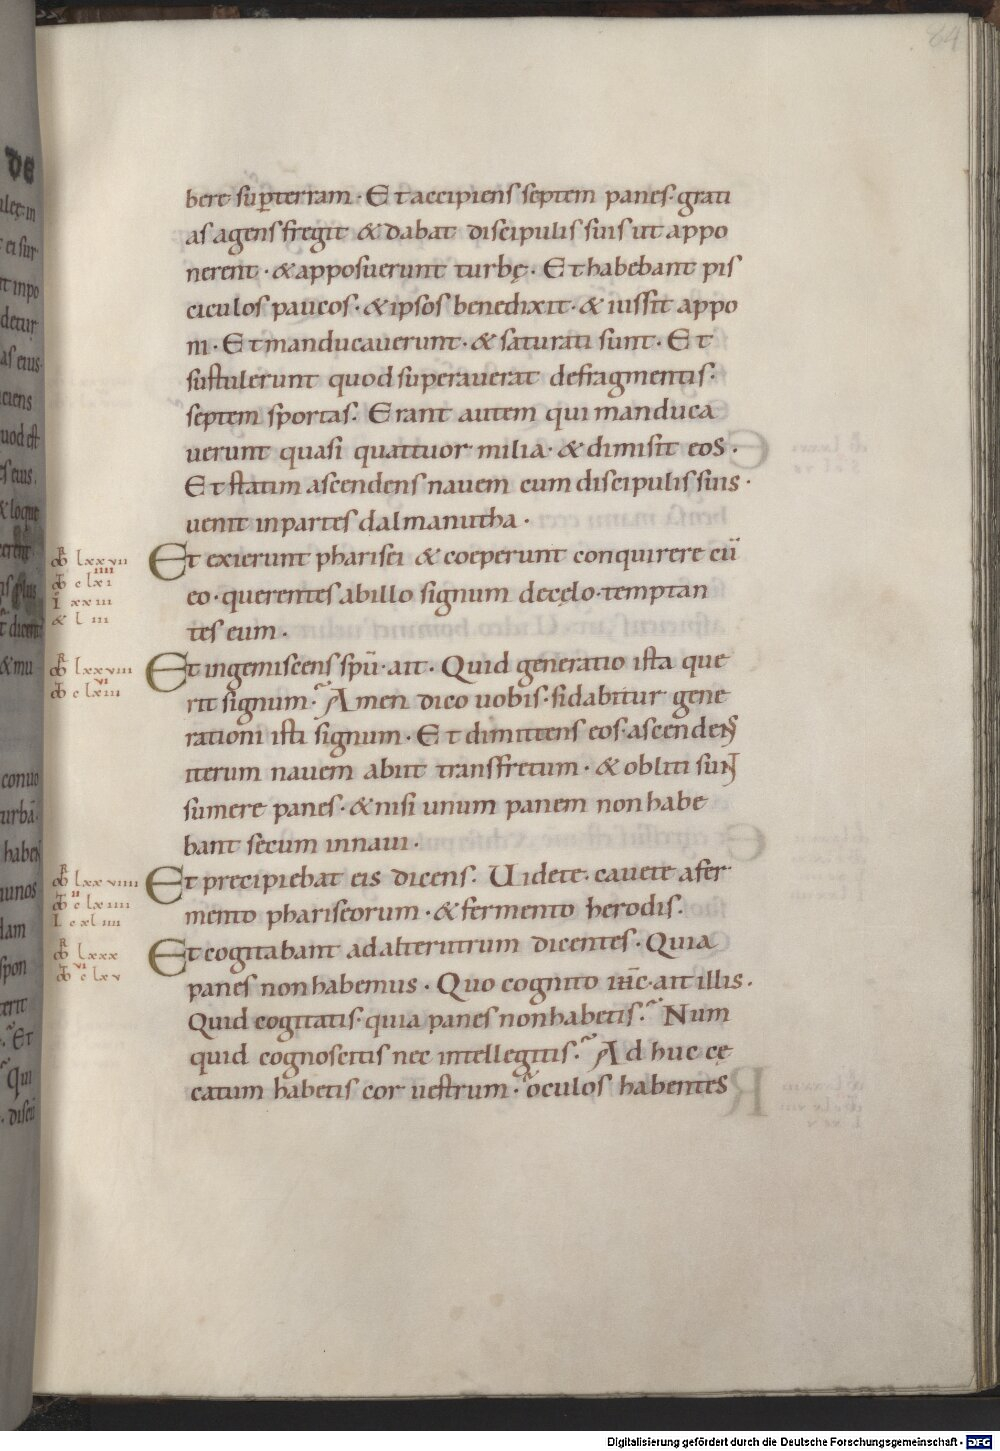 64
bere sup̄ terram · Et accipiens septem panes · grati
as agens fregit & dabat discipulis suis ut appo
nerent · & apposuerunt turbę · Et habebant pis
ciculos paucos · & ipsos benedixit · & iussit appo
ni · Et manducauerunt · & saturati sunt · Et
sustulerunt quod superauerat defragmentis ·
septem sportas · Erant autem qui manduca
uerunt quasi quattuor milia · & dimisit eos ·
Et statim ascendens nauem cum discipulis suis ·
uenit inpartes dalmanutha ·
Et exierunt pharisei & coeperunt conquirere cū
eo · querentes abillo signum decęlo · temptan
tes eum ·
Et ingemiscens spū · ait · Quid generatio ista que
rit signum · Amen dico uobis · sidabitur gene
rationi isti signum · Et dimittens eos · ascendens
iterum nauem abiit transfretum · & obliti sunt
sumere panes · & nisi unum panem non habe
bant secum innaui ·
Et precipiebat eis dicens · Uidete · cauete afer
mento phariseorum · & fermento herodis ·
Et cogitabant adalterutrum dicentes · Quia
panes non habemus · Quo cognito ih̄c · ait illis ·
Quid cogitatis · quia panes nonhabetis · Num
quid cognoscitis nec intellegitis · Ad huc cę
catum habetis cor uestrum · oculos habentes
lxxvii
lxxviii
lxxviiii
lxxx
Digitalisierung gefördert durch die Deutsche Forschungsgemeinschaft - DFG